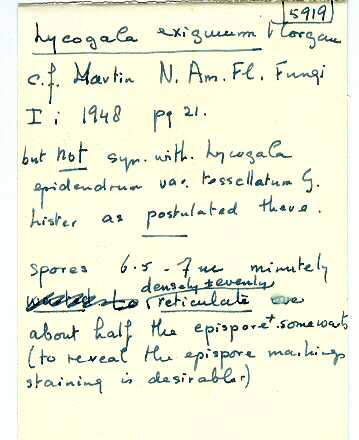 5919
Lycogala exiguum Morgan
c.f. Martin N. Am. Fl. Fungi
I i 1948 pg 21.
but not syn. with Lycogala
epidendrum var. tessellatum G.
Lister as postulated there.
spores 6.5 - 7 u minutely
densely + evenly
reticulate
about half the epispore + some warts
(to reveal the epispore markings
staining is desirable)